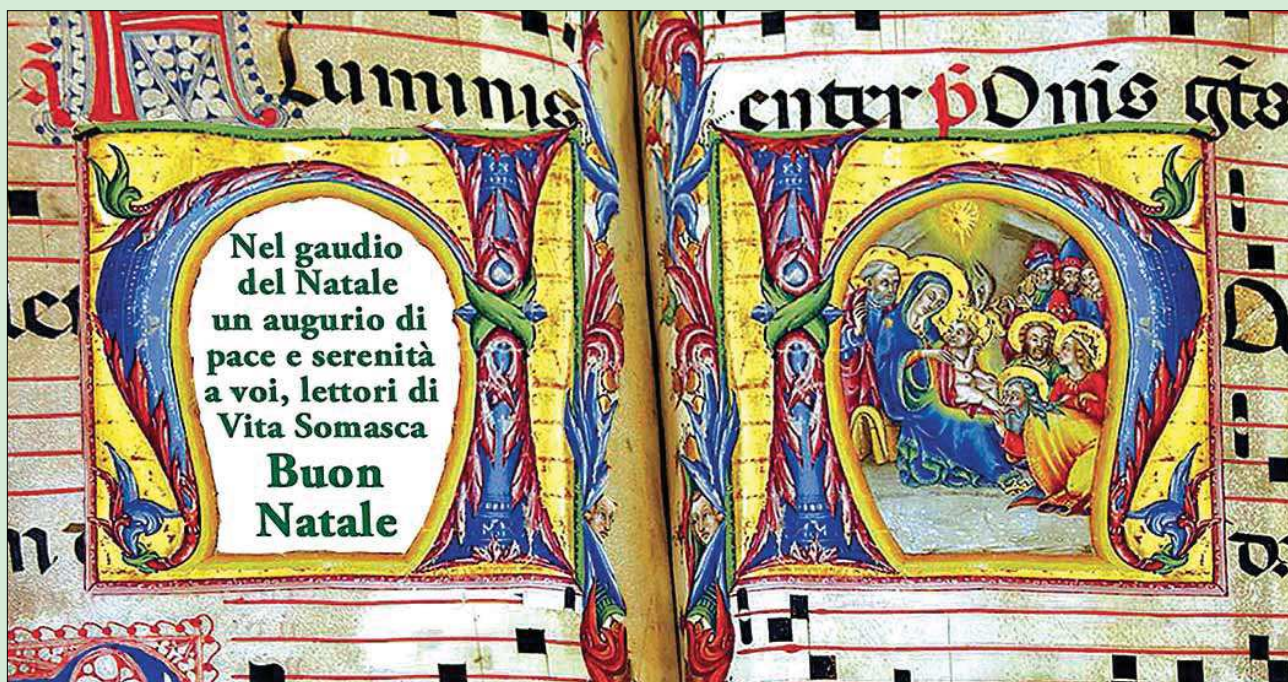 Luminis
enter p̄ Om̄s gt̄s
Nel gaudio
del Natale
un augurio di
pace e serenità
a voi, lettori di
Vita Somasca
Buon
Natale